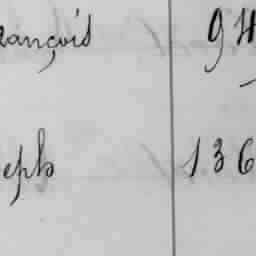 rançois 94
eph 136